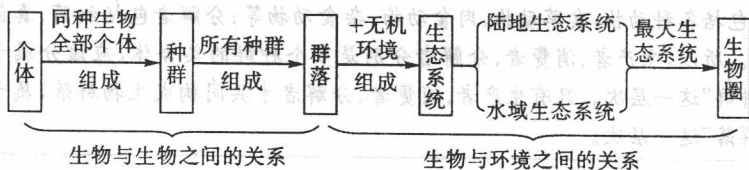 个体
同种生物
全部个体
组成
种群
所有种群
组成
群落
+无机
环境
组成
生态系统
陆地生态系统
水域生态系统
最大生
态系统
生物圈
生物与生物之间的关系
生物与环境之间的关系